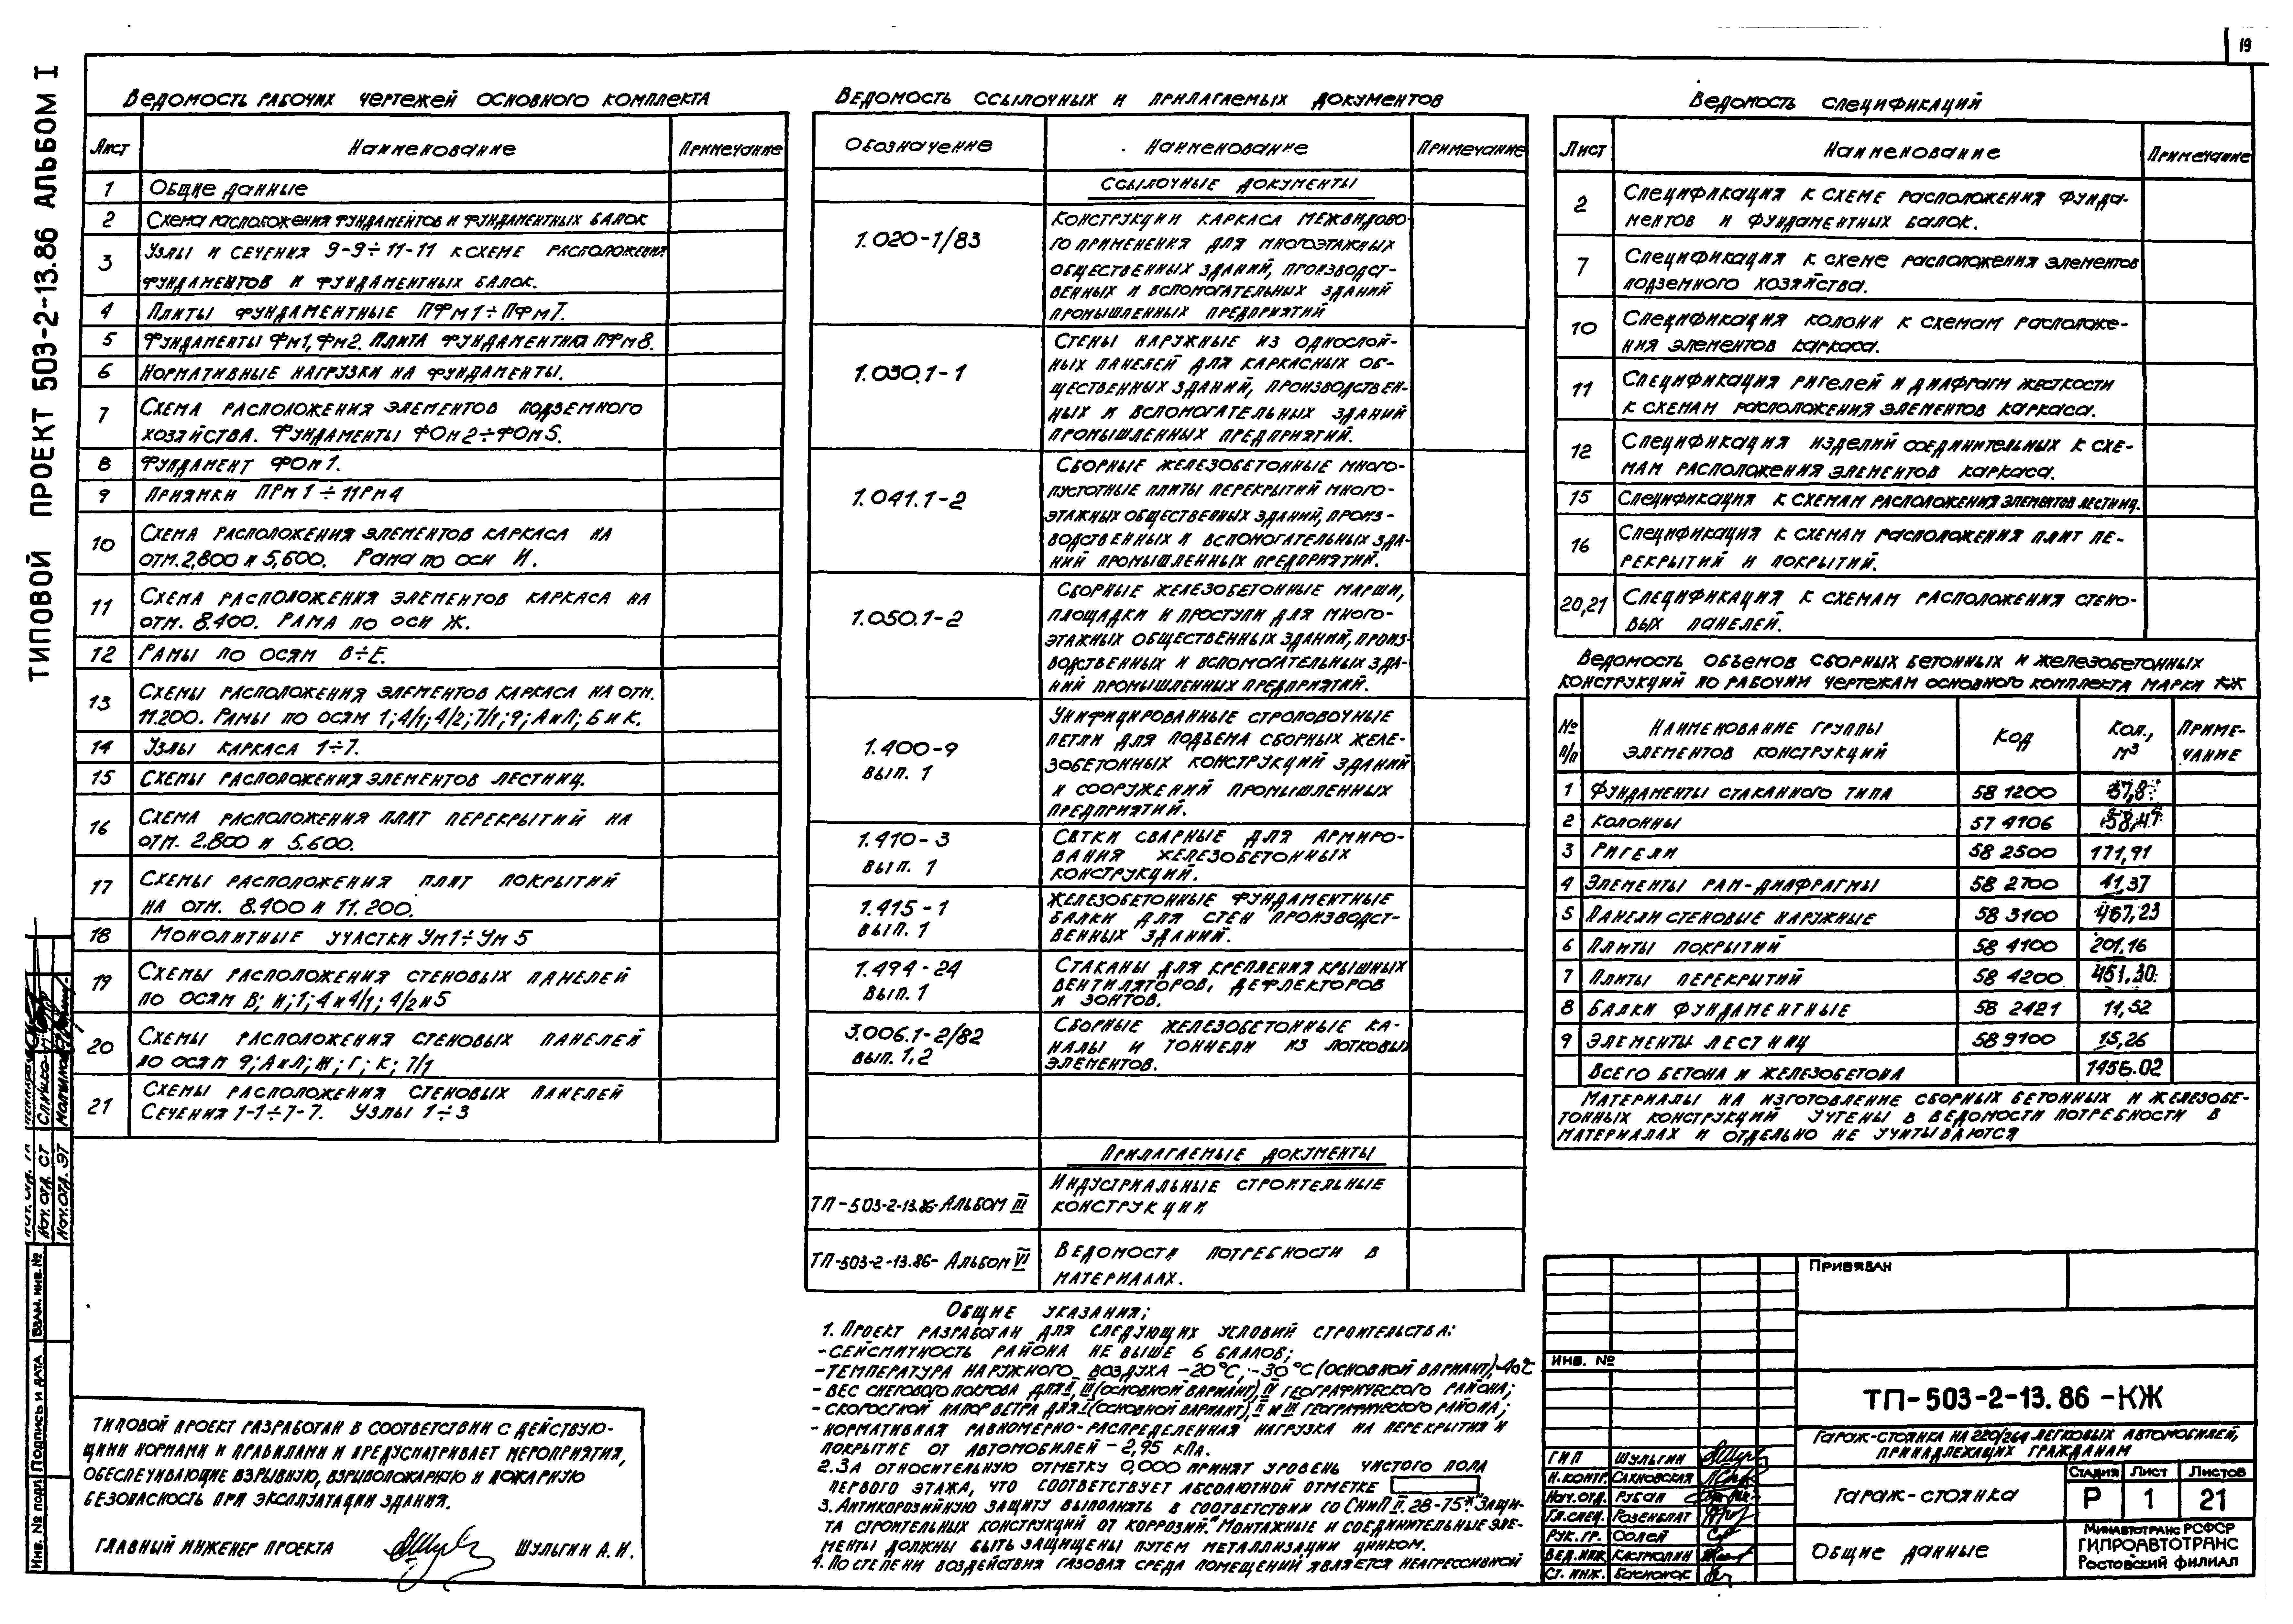 19
ТИПОВОЙ ПРОЕКТ 503-2-13.86 АЛЬБОМ I
Ведомость рабочих чертежей основного комплекта
Лист Наименование Примечание
1 Общие данные
2 Схема расположения фундаментов и фундаментных балок
3 Узлы и сечения 9-9÷11-11 к схеме расположения
фундаментов и фундаментных балок.
4 Плиты фундаментные ПФм1÷ПФм7.
5 Фундаменты Фм1, Фм2. Плита фундаментная ПФм8.
6 Нормативные нагрузки на фундаменты.
7 Схема расположения элементов подземного
хозяйства. Фундаменты ФОм2÷ФОм5.
8 Фундамент ФОм1.
9 Приямки ПРм1÷ПРм4
10 Схема расположения элементов каркаса на
отм. 2,800 и 5,600. Рама по оси И.
11 Схема расположения элементов каркаса на
отм. 8.400. Рама по оси Ж.
12 Рамы по осям В÷Е.
13 Схемы расположения элементов каркаса на отм.
11.200. Рамы по осям 1; 4/1; 4/2; 7/1; 9; А и Л; Б и К.
14 Узлы каркаса 1÷7.
15 Схемы расположения элементов лестниц.
16 Схема расположения плит перекрытий на
отм. 2.800 и 5.600.
17 Схемы расположения плит покрытий
на отм. 8.400 и 11.200.
18 Монолитные участки Ум1÷Ум5
19 Схемы расположения стеновых панелей
по осям В; И; 1; 4 и 4/1; 4/2 и 5
20 Схемы расположения стеновых панелей
по осям 9; А и Л; Ж; Г; К; 7/1
21 Схемы расположения стеновых панелей
Сечения 1-1÷7-7. Узлы 1÷3
Типовой проект разработан в соответствии с действую-
щими нормами и правилами и предусматривает мероприятия,
обеспечивающие взрывную, взрывопожарную и пожарную
безопасность при эксплуатации здания.
Главный инженер проекта Шульгин А.И.
Ведомость ссылочных и прилагаемых документов
Обозначение Наименование Примечание
Ссылочные документы
1.020-1/83 Конструкции каркаса межвидово-
го применения для многоэтажных
общественных зданий, производст-
венных и вспомогательных зданий
промышленных предприятий
1.030.1-1 Стены наружные из однослой-
ных панелей для каркасных об-
щественных зданий, производствен-
ных и вспомогательных зданий
промышленных предприятий.
1.041.1-2 Сборные железобетонные много-
пустотные плиты перекрытий много-
этажных общественных зданий, произ-
водственных и вспомогательных зда-
ний промышленных предприятий.
1.050.1-2 Сборные железобетонные марши,
площадки и проступи для много-
этажных общественных зданий, произ-
водственных и вспомогательных зда-
ний промышленных предприятий.
1.400-9 вып. 1 Унифицированные строповочные
петли для подъема сборных желе-
зобетонных конструкций зданий
и сооружений промышленных
предприятий.
1.410-3 вып. 1 Сетки сварные для армиро-
вания железобетонных
конструкций.
1.415-1 вып. 1 Железобетонные фундаментные
балки для стен производст-
венных зданий.
1.494-24 вып. 1 Стаканы для крепления крышных
вентиляторов, дефлекторов
и зонтов.
3.006.1-2/82 вып. 1,2 Сборные железобетонные ка-
налы и тоннели из лотковых
элементов.
Прилагаемые документы
ТП-503-2-13.86-Альбом III Индустриальные строительные
конструкции
ТП-503-2-13.86- Альбом VI Ведомости потребности в
материалах.
Общие указания;
1. Проект разработан для следующих условий строительства:
-сейсмичность района не выше 6 баллов;
-температура наружного воздуха -20°С; -30°С (основной вариант), -40°С
- вес снегового покрова для II, III (основной вариант) IV географического района;
- скоростной напор ветра для I (основной вариант), II и III географического района;
- нормативная равномерно-распределенная нагрузка на перекрытия и
покрытие от автомобилей - 2,95 кПа.
2. За относительную отметку 0,000 принят уровень чистого пола
первого этажа, что соответствует абсолютной отметке
3. Антикорозийную защиту выполнять в соответствии со СНиП II.28-75* "Защи-
та строительных конструкций от коррозий". Монтажные и соединительные эле-
менты должны быть защищены путем металлизации цинком.
4. По степени воздействия газовая среда помещений является неагрессивной
Ведомость спецификаций
Лист Наименование Примечание
2 Спецификация к схеме расположения фунда-
ментов и фундаментных балок.
7 Спецификация к схеме расположения элементов
подземного хозяйства.
10 Спецификация колонн к схемам расположе-
ния элементов каркаса.
11 Спецификация ригелей и диафрагм жесткости
к схемам расположения элементов каркаса.
12 Спецификация изделий соединительных к схе-
мам расположения элементов каркаса.
15 Спецификация к схемам расположения элементов лестниц.
16 Спецификация к схемам расположения плит пе-
рекрытий и покрытий.
20,21 Спецификация к схемам расположения стено-
вых панелей.
Ведомость объемов сборных бетонных и железобетонных
конструкций по рабочим чертежам основного комплекта марки КЖ
№ п/п Наименование группы элементов конструкций Код Кол., м³ Примечание
1 Фундаменты стаканного типа 58 1200
2 Колонны 57 4106
3 Ригели 58 2500 171,91
4 Элементы рам-диафрагмы 58 2700 41,37
5 Панели стеновые наружные 58 3100 467,23
6 Плиты покрытий 58 4100 201,16
7 Плиты перекрытий 58 4200 451,30
8 Балки фундаментные 58 2421 11,52
9 Элементы лестниц 58 9100 15,26
Всего бетона и железобетона 1456.02
Материалы на изготовление сборных бетонных и железобе-
тонных конструкций учтены в ведомости потребности в
материалах и отдельно не учитываются
Привязан
Инв. №
ТП-503-2-13.86-КЖ
Гараж-стоянка на 220/264 легковых автомобилей,
принадлежащих гражданам
ГИП Шульгин
Н.контр. Сахновская
Нач.отд. Рубан
Гл.спец. Розенблат
Рук.гр.
Вед.инж.
Ст. инж.
Гараж-стоянка
Стадия Лист Листов
Р 1 21
Общие данные
Минавтотранс РСФСР
ГИПРОАВТОТРАНС
Ростовский филиал
Нач. отд. СТ
Нач. отд. ЭТ
Взам. инв. №
Подпись и дата
Инв. № подл.